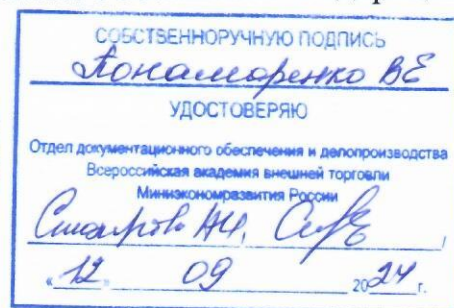 СОБСТВЕННОРУЧНУЮ ПОДПИСЬ
Понамаренко ВЕ
УДОСТОВЕРЯЮ
Отдел документационного обеспечения и делопроизводства
Всероссийская академия внешней торговли
Минэкономразвития России
«12» 09 2024 г.